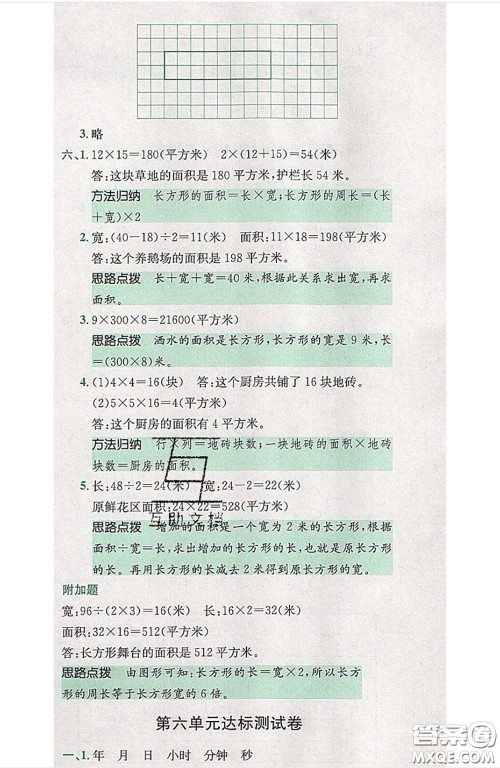 3.略
六、1.12×15=180(平方米) 2×(12+15)=54(米)
答:这块草地的面积是 180 平方米,护栏长 54 米。
方法归纳 长方形的面积=长×宽;长方形的周长=(长
+宽)×2
2.宽:(40-18)÷2=11(米) 面积:11×18=198(平方米)
答:这个养鹅场的面积是 198 平方米。
思路点拨 长+宽+宽=40 米,根据此关系求出宽,再求
面积。
3.9×300×8=21600(平方米)
思路点拨 洒水的面积是长方形,长方形的宽是 9 米,长
=(300×8)米。
4.(1)4×4=16(块) 答:这个厨房共铺了 16 块地砖。
(2)5×5=4(平方米)
答:这个厨房的面积有 4 平方米。
方法归纳 行×列=地砖块数;一块地砖的面积×地砖
块数=厨房的面积。
5.长:48÷2=24(米) 宽:24-2=22(米)
原鲜花区面积:24×22=528(平方米)
互助文档
思路点拨 增加的面积是一个宽为 2 米的长方形,根据
面积÷宽=长,求出增加的长方形的长,也就是原长方形
的长。再用长方形的长减去 2 米得到原长方形的宽。
附加题
宽:96÷(2×3)=16(米) 长:16×2=32(米)
面积:32×16=512(平方米)
答:长方形舞台的面积是 512 平方米。
思路点拨 由图形可知:长方形的长=宽×2,所以长方形
的周长等于长方形宽的 6 倍。
第六单元达标测试卷
一、1.年 月 日 小时 分钟 秒
答案圈
MXQE.COM